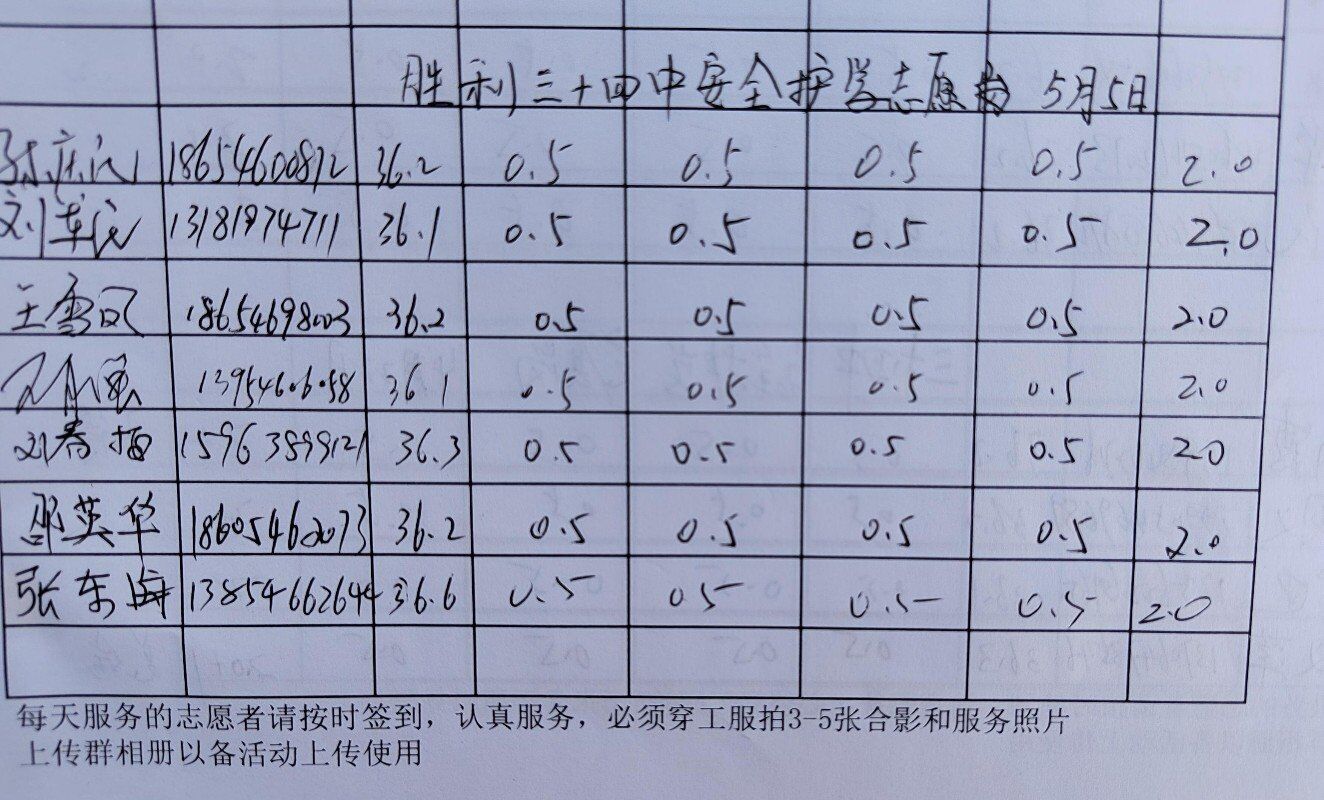 胜利三十四中安全护学志愿者 5月5日
18654600872 36.2 0.5 0.5 0.5 0.5 2.0
13181974711 36.1 0.5 0.5 0.5 0.5 2.0
王雪风 18654698003 36.2 0.5 0.5 0.5 0.5 2.0
13954606058 36.1 0.5 0.5 0.5 0.5 2.0
刘春梅 15963899121 36.3 0.5 0.5 0.5 0.5 20
邵英华 18605462073 36.2 0.5 0.5 0.5 0.5 2.0
张东海 13854662644 36.6 0.5 05 0.5 0.5 2.0
每天服务的志愿者请按时签到，认真服务，必须穿工服拍3-5张合影和服务照片
上传群相册以备活动上传使用